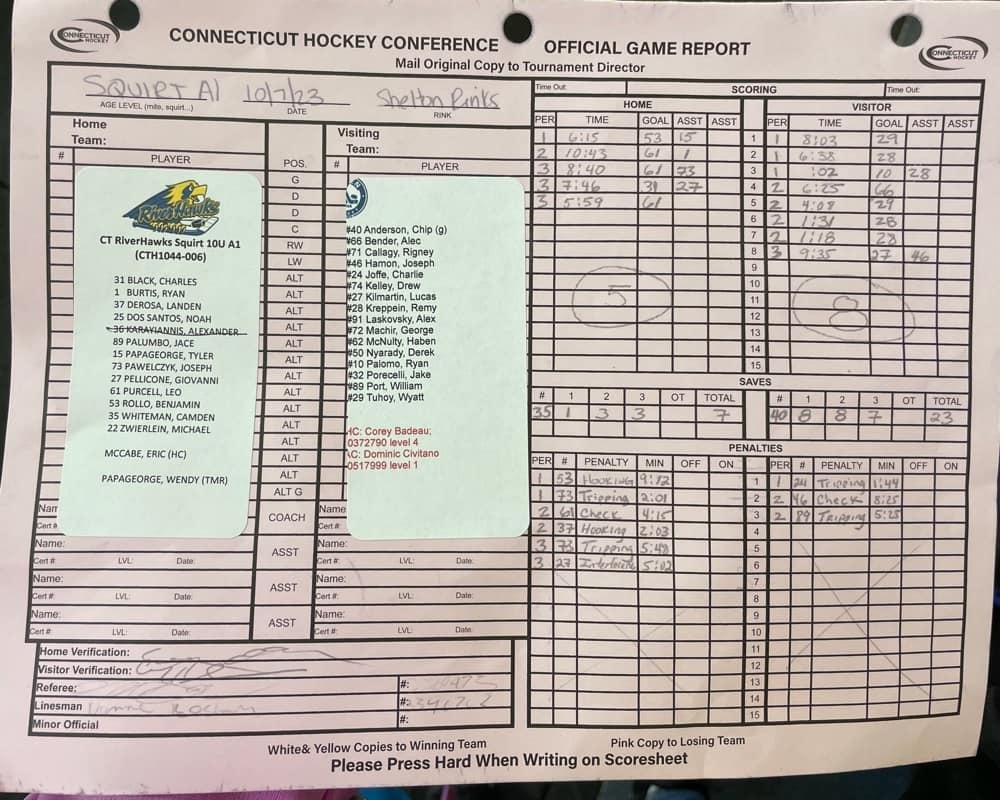 CONNECTICUT HOCKEY
CONNECTICUT HOCKEY CONFERENCE OFFICIAL GAME REPORT
CONNECTICUT HOCKEY
Mail Original Copy to Tournament Director
SQUIRT A1 10/7/23 Shelton Rinks
AGE LEVEL (mite, squirt...) DATE RINK
Home Team:
# PLAYER
RiverHawks
CT RiverHawks Squirt 10U A1
(CTH1044-006)
31 BLACK, CHARLES
1 BURTIS, RYAN
37 DEROSA, LANDEN
25 DOS SANTOS, NOAH
36 KARAYIANNIS, ALEXANDER
89 PALUMBO, JACE
15 PAPAGEORGE, TYLER
73 PAWELCZYK, JOSEPH
27 PELLICONE, GIOVANNI
61 PURCELL, LEO
53 ROLLO, BENJAMIN
35 WHITEMAN, CAMDEN
22 ZWIERLEIN, MICHAEL
MCCABE, ERIC (HC)
PAPAGEORGE, WENDY (TMR)
POS.
G
D
D
C
RW
LW
ALT
ALT
ALT
ALT
ALT
ALT
ALT
ALT
ALT
ALT
ALT
ALT
ALT G
COACH
ASST
ASST
ASST
Visiting Team:
# PLAYER
#40 Anderson, Chip (g)
#66 Bender, Alec
#71 Callagy, Rigney
#46 Hamon, Joseph
#24 Joffe, Charlie
#74 Kelley, Drew
#27 Kilmartin, Lucas
#28 Kreppein, Remy
#91 Laskovsky, Alex
#72 Machir, George
#62 McNulty, Haben
#50 Nyarady, Derek
#10 Palomo, Ryan
#32 Porecelli, Jake
#89 Port, William
#29 Tuhoy, Wyatt
HC: Corey Badeau;
0372790 level 4
AC: Dominic Civitano
0517999 level 1
Nam
Cert #
Name
Cert #:
Name:
Cert #: LVL: Date:
Name:
Cert #: LVL: Date:
Name:
Cert #: LVL: Date:
Name:
Cert #: LVL: Date:
Name:
Cert #: LVL: Date:
Name:
Cert #: LVL: Date:
Home Verification:
Visitor Verification:
Referee: #:
Linesman #:
Minor Official #:
Time Out: SCORING Time Out:
HOME VISITOR
PER TIME GOAL ASST ASST PER TIME GOAL ASST ASST
1 6:15 53 15 1 1 8:03 29
2 10:43 61 1 2 1 6:38 28
3 8:40 61 73 3 1 :02 10 28
3 7:46 31 27 4 2 6:25 66
3 5:59 61 5 2 4:08 29
6 2 1:31 28
7 2 1:18 28
8 3 9:35 27 46
9
10
11
12
13
14
15
5 8
SAVES
# 1 2 3 OT TOTAL # 1 2 3 OT TOTAL
35 1 3 3 7 40 8 8 7 23
PENALTIES
PER # PENALTY MIN OFF ON PER # PENALTY MIN OFF ON
1 53 HOOKING 9:12 1 1 24 Tripping 1:44
1 73 Tripping 2:01 2 2 46 Check 8:25
2 61 Check 4:15 3 2 89 Tripping 5:25
2 37 Hooking 2:03 4
3 73 Tripping 5:48 5
3 27 5:02 6
7
8
9
10
11
12
13
14
15
White& Yellow Copies to Winning Team Pink Copy to Losing Team
Please Press Hard When Writing on Scoresheet